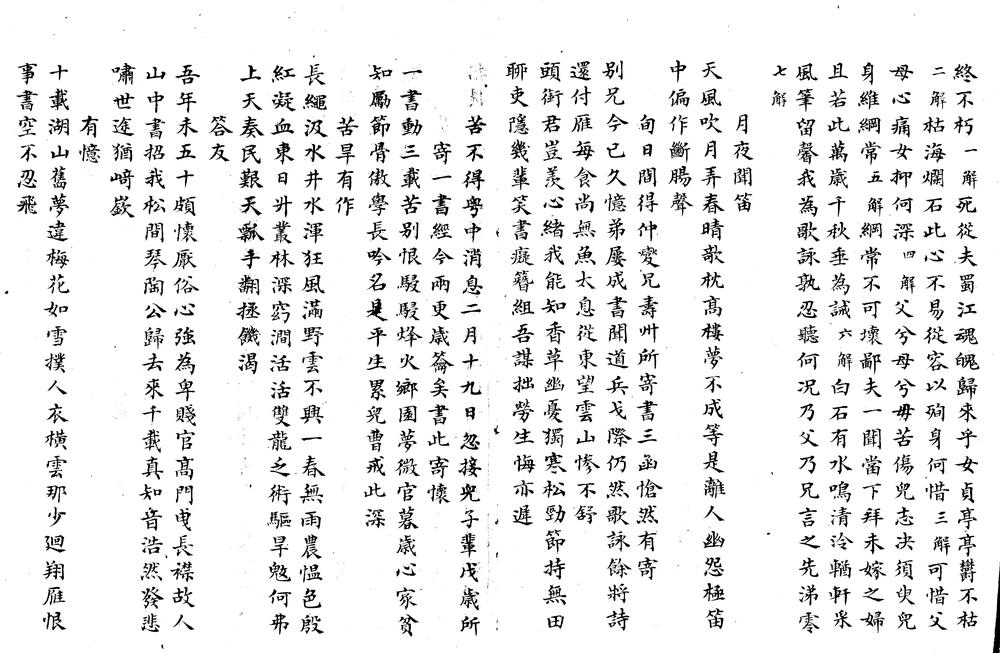 終不朽一解死從夫蜀江魂魄歸來乎女貞亭亭欝不枯
二解枯海爛石此心不易從容以殉身何惜三解可惜父
母心痛女抑何深四解父兮母兮毋苦傷兒志決須臾兒
身維綱常五解綱常不可壞鄙夫一聞當下拜未嫁之婦
且若此萬歲千秋垂為誡六解白石有水鳴清泠輶軒采
風筆留馨我為歌詠孰忍聽何况乃父乃兄言之先涕零
七解
月夜聞笛
天風吹月弄春晴欹枕高樓夢不成等是離人幽怨極笛
中偏作斷腸聲
旬日間得仲燮兄壽州所寄書三函愴然有寄
别兄今已久憶弟屡成書聞道兵戈際仍然歌詠餘將詩
還付雁每食尚無魚太息從東望雲山慘不舒
頭銜君豈羨心緒我能知香草幽憂獨寒松勁節持無田
聊吏隱幾輩笑書癡簪組吾謀拙勞生悔亦遲
苦不得粤中消息二月十九日忽接兒子輩戊歲所
寄一書經今兩更歲籥矣書此寄懷
一書動三載苦别恨駸駸烽火鄉園夢微官暮歲心家貧
知勵節骨傲學長吟名是平生累兒曹戒此深
苦旱有作
長繩汲水井水渾狂風滿野雲不興一春無雨農愠色殷
紅凝血東日升叢林深窈澗活活雙龍之術驅旱魃何弗
上天奏民艱天瓢手翻拯饑渴
答友
吾年未五十頗懷厭俗心強為卑賤官高門曳長襟故人
山中書招我松間琴陶公歸去來千載真知音浩然發悲
嘯世途猶崎嶔
有憶
十載湖山舊夢違梅花如雪撲人衣橫雲那少廻翔雁恨
事書空不忍飛